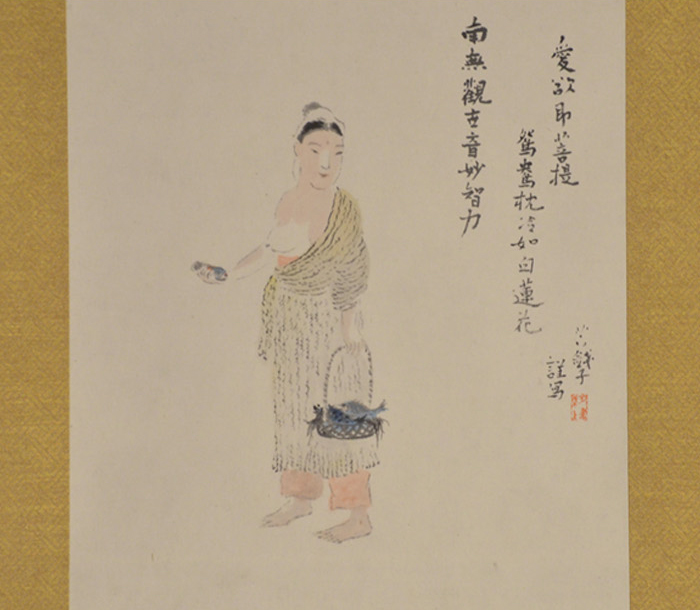 愛欲即是菩提
鴛鴦枕冷如白蓮花
南無觀世音妙智力
芋銭子
謹写